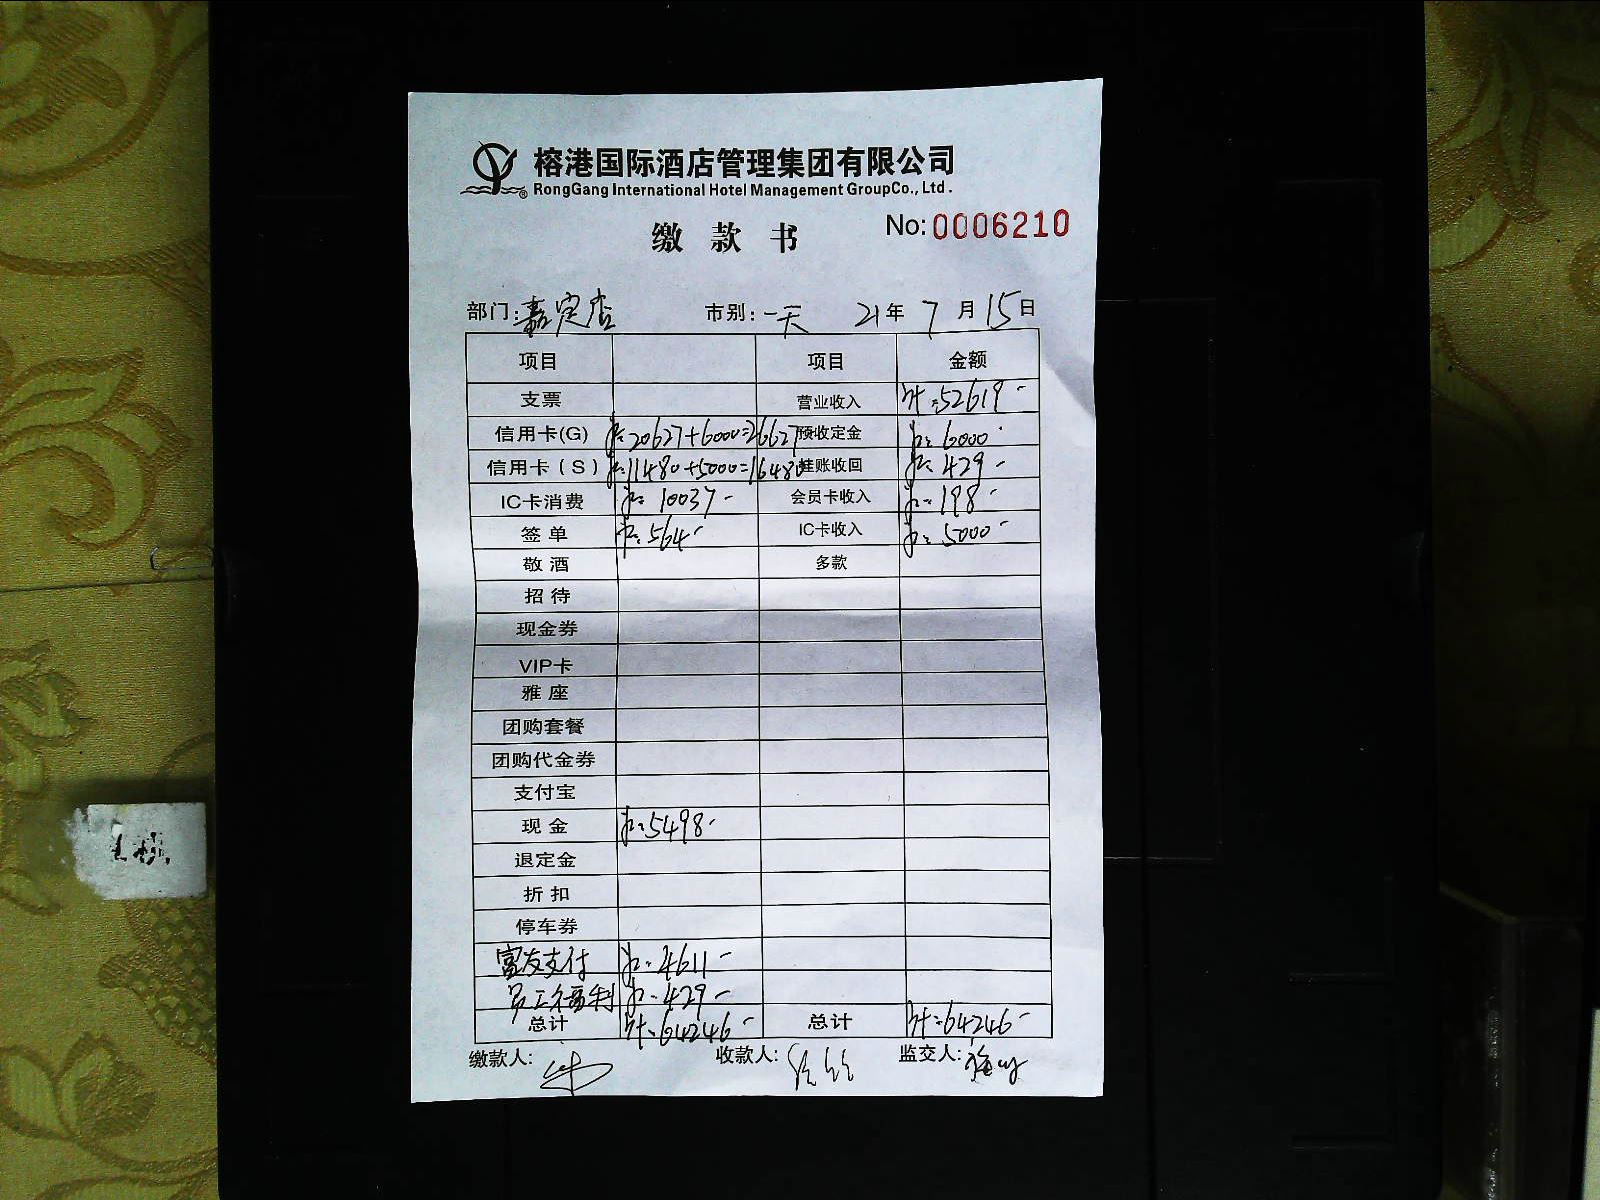 榕港国际酒店管理集团有限公司
RongGang International Hotel Management GroupCo., Ltd.
缴款书 No:0006210
部门:嘉定店 市别:一天 21年7月15日
项目 项目 金额
支票 营业收入 计:52619-
信用卡(G) 20627+6000=26627 预收定金 6000-
信用卡(S) 11480+5000=16480 挂账收回 429-
IC卡消费 10037- 会员卡收入 198-
签单 564- IC卡收入 5000-
敬酒 多款
招待
现金券
VIP卡
雅座
团购套餐
团购代金券
支付宝
现金 5498-
退定金
折扣
停车券
富友支付 4611-
员工福利 429-
总计 计:64246- 总计 计:64246-
缴款人: 收款人: 监交人: